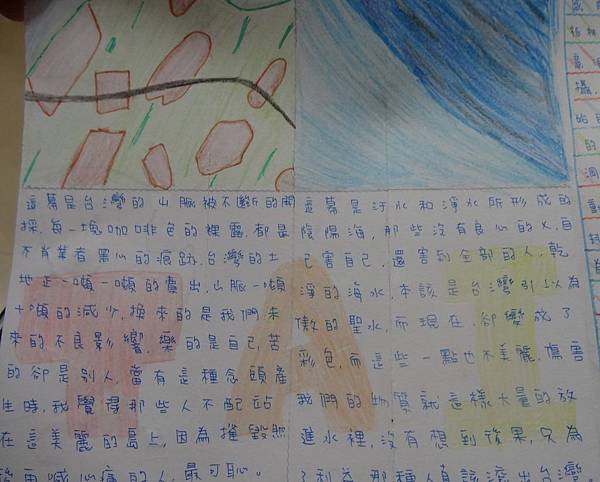 這幕是台灣的山脈被不斷的開
採,每一塊咖啡色的裸露,都是
不肖業者黑心的痕跡,台灣的土
地正一頓一頓的賣出,山脈一頓
一頓的減少,換來的是我們未
來的不良影響,樂的是自己,苦
的卻是別人,當有這種念頭產
生時,我覺得那些人不配站
在這美麗的島上,因為摧毀然
後再喊心痛的人,最可恥。
這幕是汙水和淨水所形成的
陰陽海,那些沒有良心的人,自
己害自己,還害到全部的人,乾
淨的海水,本該是台灣引以為
傲的聖水,而現在,卻變成了
彩色,而這些一點也不美麗,傷害
我們的物質就這樣大量的放
進水裡,沒有想到後果,只為
了利益,那種人真該滾出台灣。
TAI